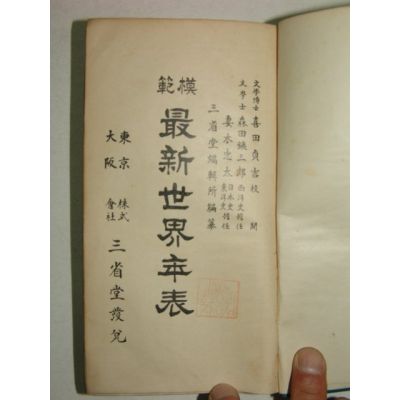 文學博士 喜田貞吉校閲
文學士 森田鐵三郎 西洋史擔任
妻木忠太 日本史東洋史擔任
三省堂編輯所編纂
模範
最新世界年表
東京 大阪 株式會社 三省堂發兌